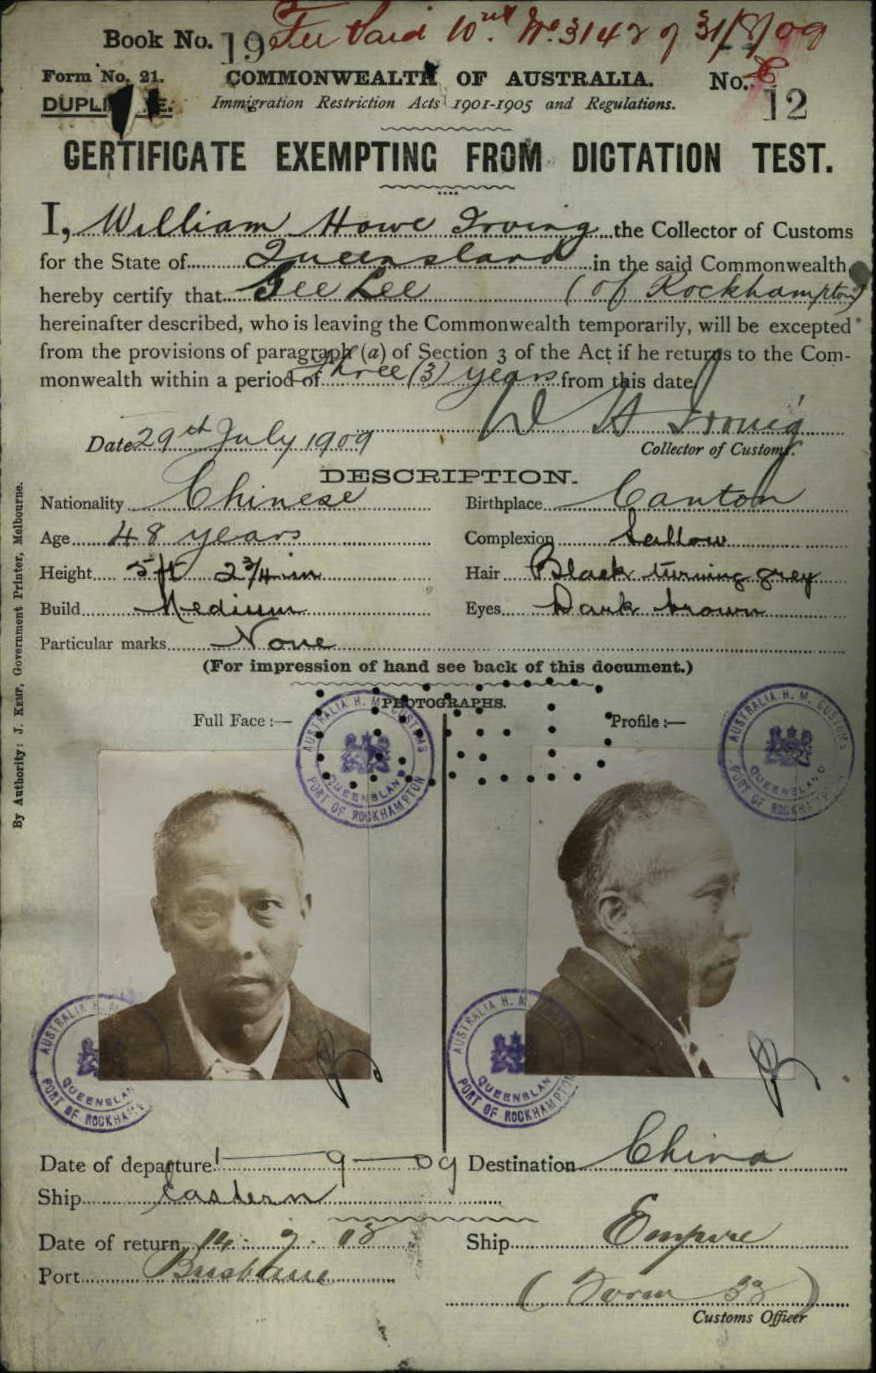 Book No. 19 Fee Paid 10/- No. 3142 of 31/8/09
Form No. 21. COMMONWEALTH OF AUSTRALIA. No. 12
DUPLI E. Immigration Restriction Acts 1901-1905 and Regulations.
CERTIFICATE EXEMPTING FROM DICTATION TEST.
I, William Howe Irving the Collector of Customs
for the State of Queensland in the said Commonwealth
hereby certify that Gee Lee (of Rockhampton)
hereinafter described, who is leaving the Commonwealth temporarily, will be excepted
from the provisions of paragraph (a) of Section 3 of the Act if he returns to the Com-
monwealth within a period of three (3) years from this date
W H Irving
Date 29th July 1909 Collector of Customs.
DESCRIPTION.
Nationality Chinese Birthplace Canton
Age 48 years Complexion Sallow
Height 5 ft 2 3/4 in Hair Black turning grey
Build Medium Eyes Dark brown
Particular marks None
(For impression of hand see back of this document.)
PHOTOGRAPHS.
Full Face :— Profile :—
AUSTRALIA H. M. CUSTOMS QUEENSLAND PORT OF ROCKHAMPTON
AUSTRALIA H. M. CUSTOMS QUEENSLAND PORT OF ROCKHAMPTON
AUSTRALIA H. M. QUEENSLAN PORT OF ROCKHAM
AUSTRALIA H. M. QUEENSLAN PORT OF ROCKHAMPTON
Date of departure 1-9-09 Destination China
Ship Eastern
Date of return Ship Empire
Port Brisbane
(Form 32)
Customs Officer
By Authority: J. KEMP, Government Printer, Melbourne.